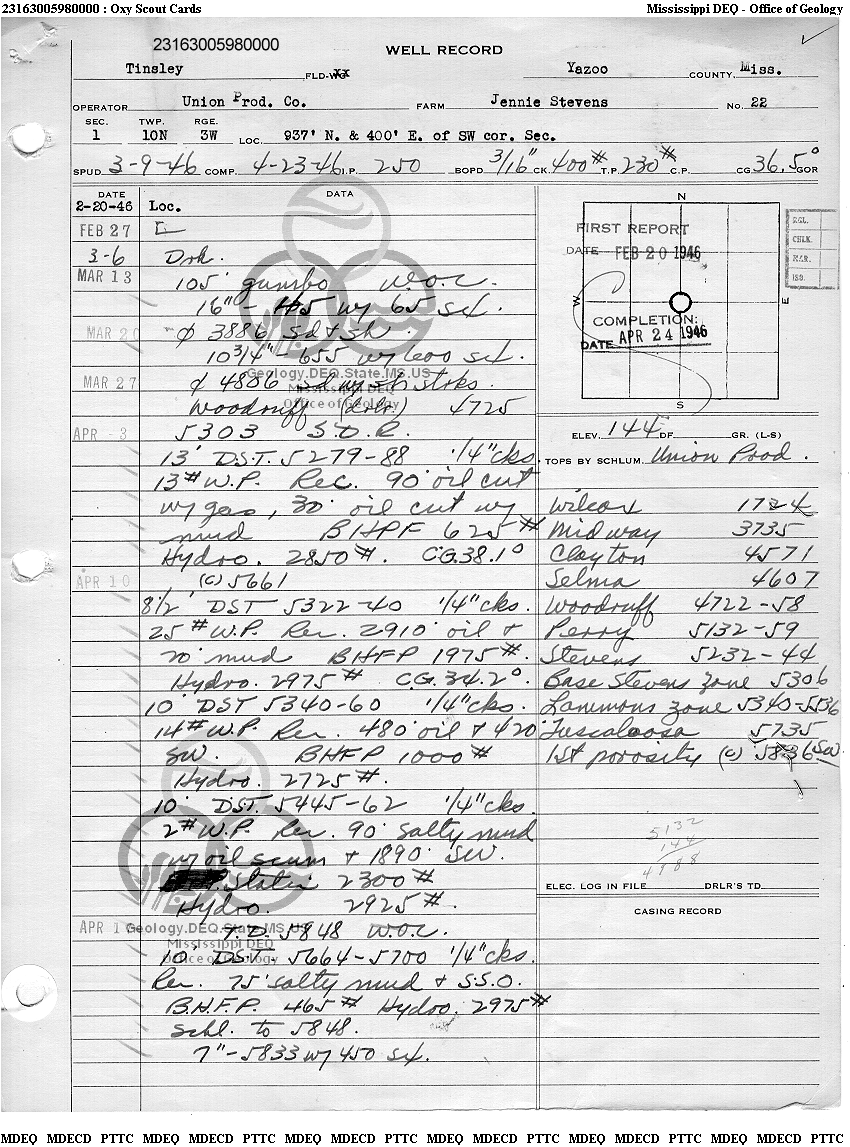 23163005980000 : Oxy Scout Cards
Mississippi DEQ - Office of Geology
23163005980000
WELL RECORD
Tinsley FLD-WXX Yazoo COUNTY, Miss.
OPERATOR Union Prod. Co. FARM Jennie Stevens No. 22
SEC. TWP. RGE.
1 10N 3W LOC. 937' N. & 400' E. of SW cor. Sec.
SPUD. 3-9-46 COMP. 4-23-46 I.P. 250 BOPD 3/16" CK. 400# T.P. 230# C.P. CG. 36.5° GOR
DATE DATA
2-20-46 Loc.
FEB 27
3-6 Drk.
MAR 13 105' gumbo W.O.C.
16" - 105 w/ 65 sx.
MAR 20 ¢ 3886 sd & sh
10 3/4" 655 w/ 600 sx.
MAR 27 ¢ 4806 sd w/ sh strks.
Woodruff (drlr.) 4725
APR - 3 5303 S.D.R.
13' D.S.T. 5279-88 1/4" cks.
13# W.P. Rec. 90' oil cut
w/ gas, 30' oil cut w/
mud BHPF 625#
Hydro. 2850#. CG. 38.1°
APR 10 (c) 5661
8 1/2' DST 5322-40 1/4" cks.
25# W.P. Rec. 2910' oil &
20' mud BHFP 1975#.
Hydro. 2975# CG. 34.2°
10' DST 5340-60 1/4" cks.
14# W.P. Rec. 480' oil & 420'
SW. BHFP 1000#
Hydro. 2725#.
10' DST. 5445-62 1/4" cks.
2# W.P. Rec. 90' salty mud
w/ oil scum & 1890' SW.
Static 2300#
Hydro. 2925#.
APR 1 T.D. 5848 W.O.C.
10' DST 5664-5700 1/4" cks.
Rec. 75' salty mud & S.S.O.
B.H.F.P. 465# Hydro. 2975#
Schl. to 5848.
7" - 5833 w/ 450 sx.
N
W
E
S
FIRST REPORT
DATE FEB 20 1946
COMPLETION:
DATE APR 24 1946
CHLK.
ELEV. 144 DF GR. (L-S)
TOPS BY SCHLUM. Union Prod.
Wilcox 1724
Midway 3735
Clayton 4571
Selma 4607
Woodruff 4722-58
Perry 5132-59
Stevens 5232-44
Base Stevens zone 5306
Lammons zone 5340-5536
Tuscaloosa 5735
1st porosity (c) 5836 SW
5132
144
4988
ELEC. LOG IN FILE DRLR'S TD
CASING RECORD
Geology.DEQ.State.MS.US
Mississippi DEQ
Office of Geology
Geology.DEQ.State.MS.US
Mississippi DEQ
Office of Geology
MDEQ MDECD PTTC MDEQ MDECD PTTC MDEQ MDECD PTTC MDEQ MDECD PTTC MDEQ MDECD PTTC MDEQ MDECD PTTC